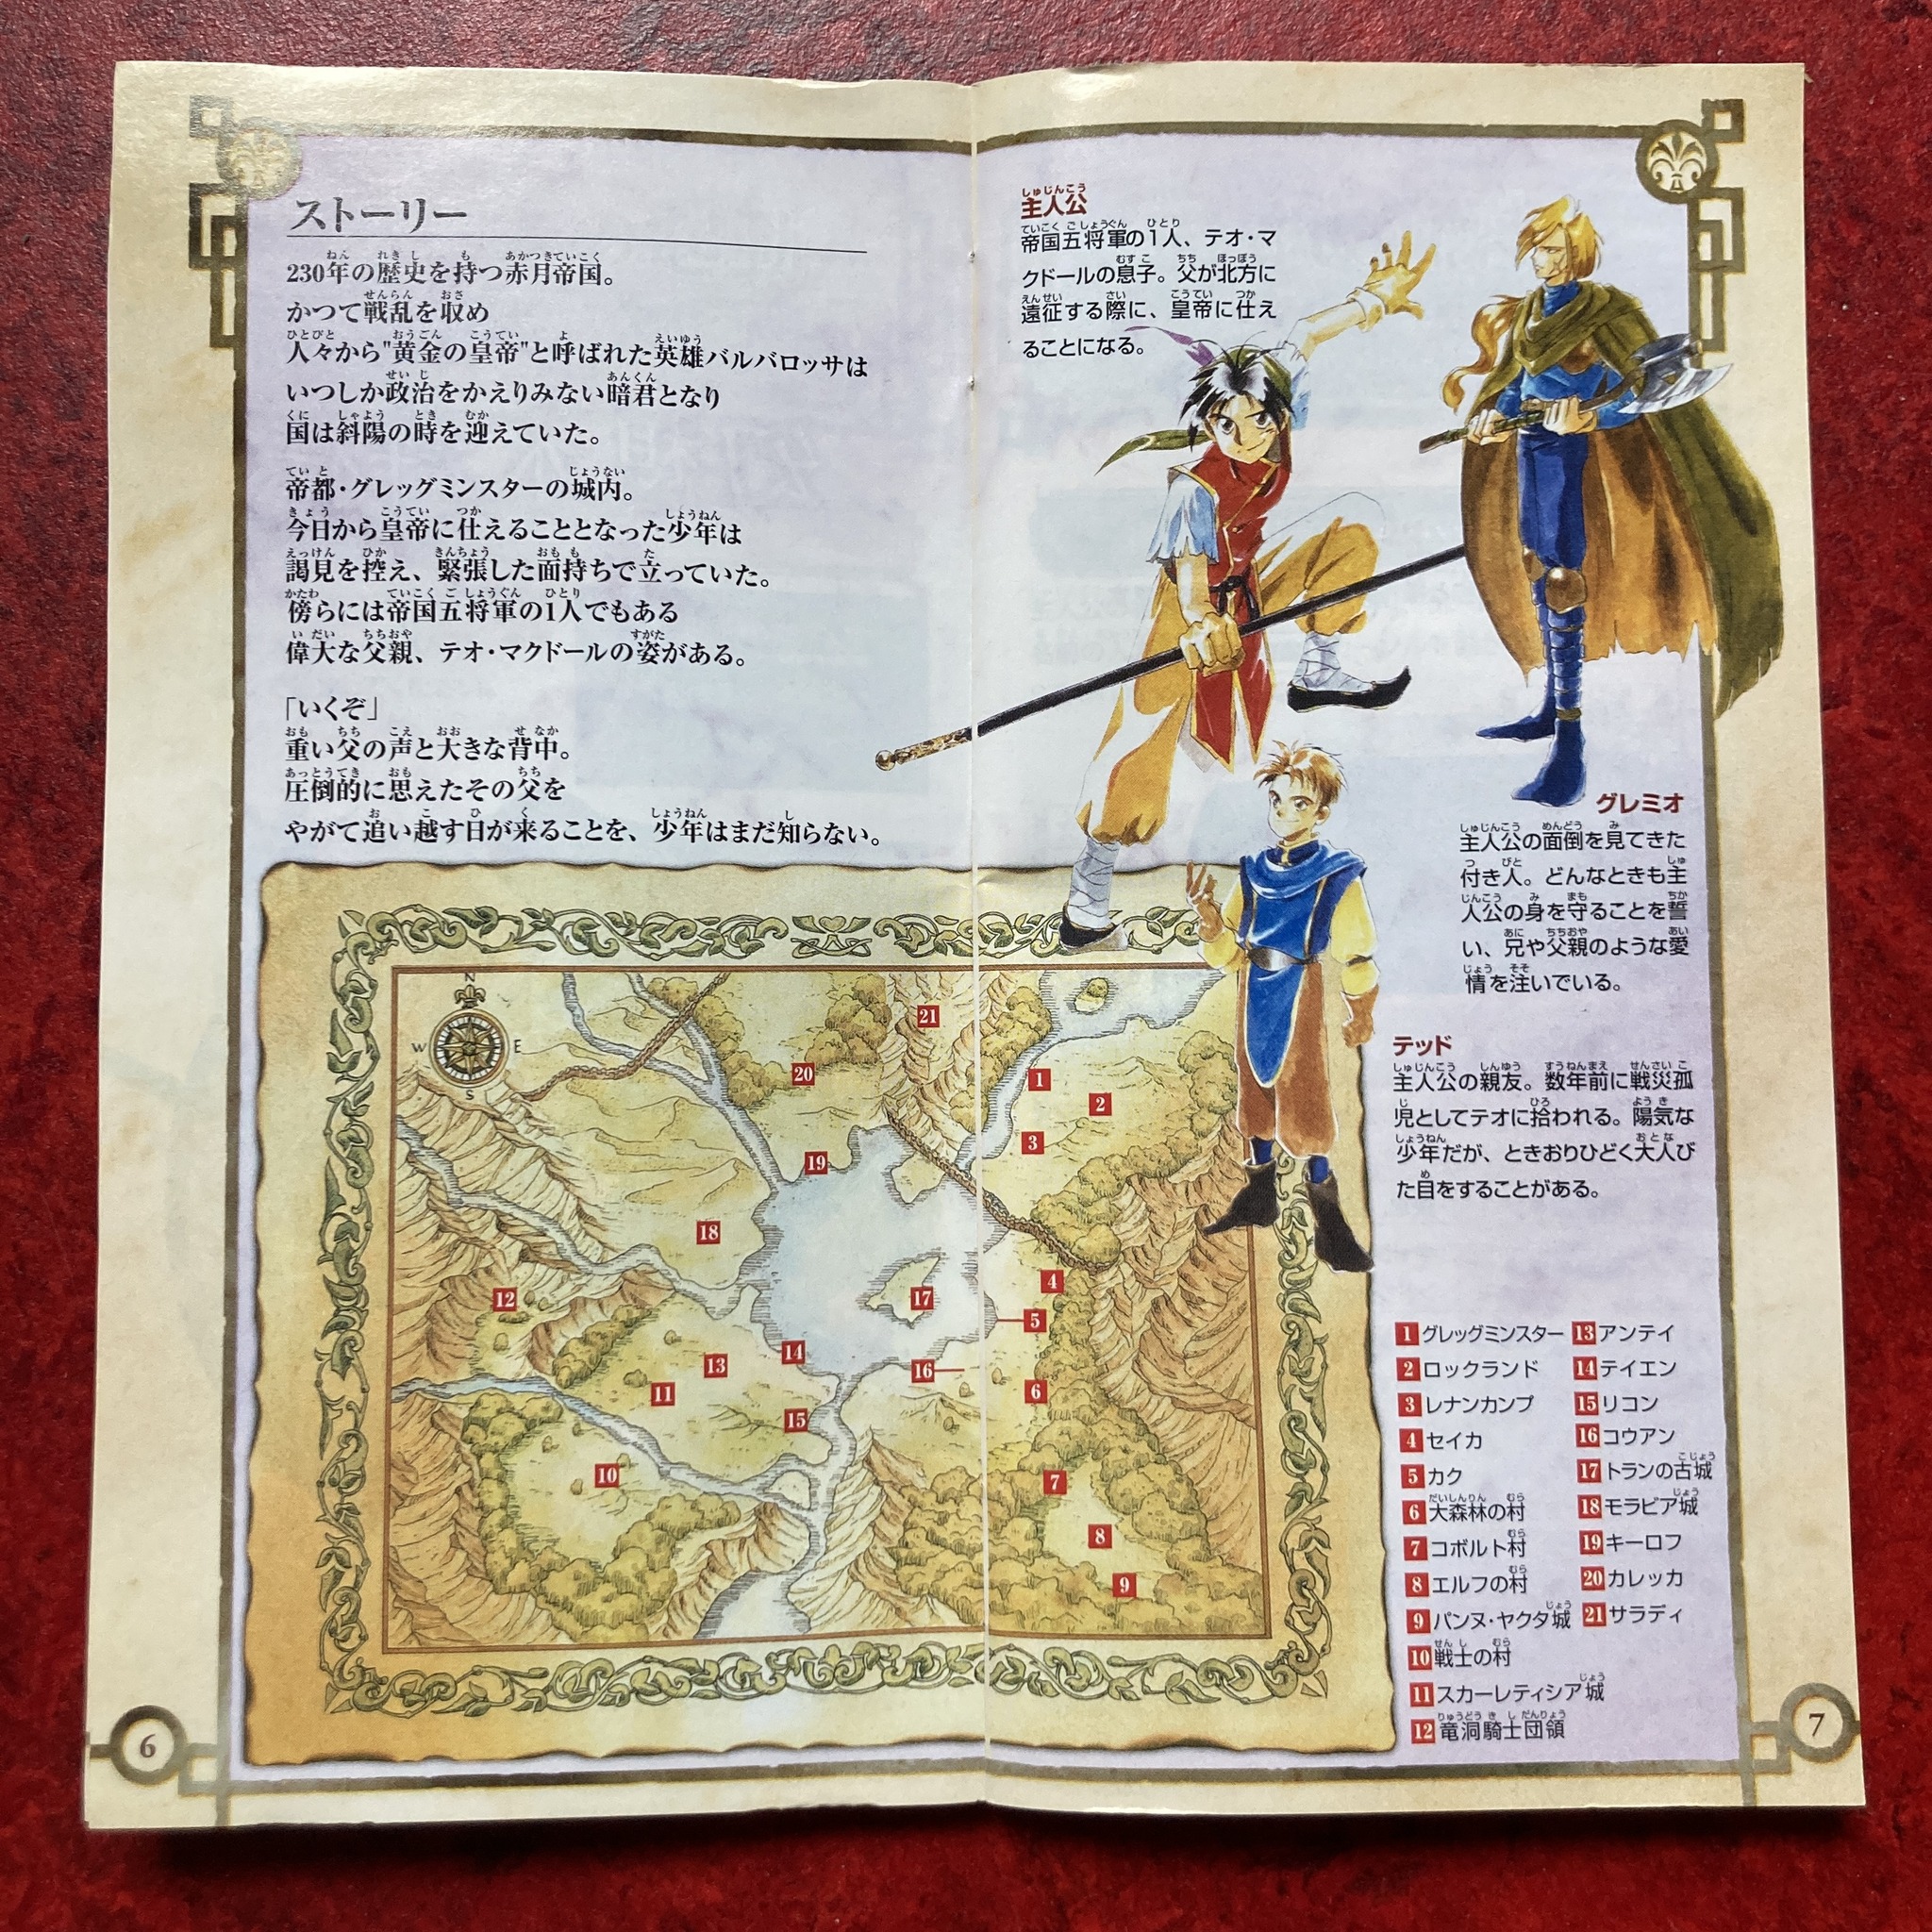 ストーリー
230年の歴史を持つ赤月帝国。
かつて戦乱を収め
人々から"黄金の皇帝"と呼ばれた英雄バルバロッサは
いつしか政治をかえりみない暗君となり
国は斜陽の時を迎えていた。
帝都・グレッグミンスターの城内。
今日から皇帝に仕えることとなった少年は
謁見を控え、緊張した面持ちで立っていた。
傍らには帝国五将軍の1人でもある
偉大な父親、テオ・マクドールの姿がある。
「いくぞ」
重い父の声と大きな背中。
圧倒的に思えたその父を
やがて追い越す日が来ることを、少年はまだ知らない。
主人公
帝国五将軍の1人、テオ・マ
クドールの息子。父が北方に
遠征する際に、皇帝に仕え
ることになる。
グレミオ
主人公の面倒を見てきた
付き人。どんなときも主
人公の身を守ることを誓
い、兄や父親のような愛
情を注いでいる。
テッド
主人公の親友。数年前に戦災孤
児としてテオに拾われる。陽気な
少年だが、ときおりひどく大人び
た目をすることがある。
N
W E
S
21
20
1
2
3
19
18
4
12
17
5
14
13
16
11
6
15
10
7
8
9
1 グレッグミンスター
2 ロックランド
3 レナンカンプ
4 セイカ
5 カク
6 大森林の村
7 コボルト村
8 エルフの村
9 パンヌ・ヤクタ城
10 戦士の村
11 スカーレティシア城
12 竜洞騎士団領
13 アンテイ
14 テイエン
15 リコン
16 コウアン
17 トランの古城
18 モラビア城
19 キーロフ
20 カレッカ
21 サラディ
6
7